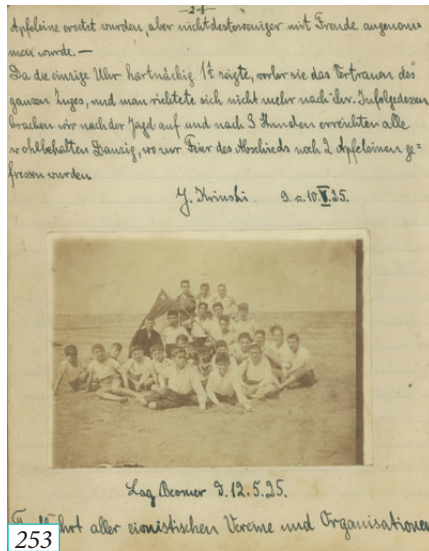 -24-
Apfelsine ersetzt wurden, aber nichtdestoweniger mit Freude angenom=
men wurde. —
Da die einzige Uhr hartnäckig 1½ zeigte, verlor sie das Vertrauen des
ganzen Zuges, und man richtete sich nicht mehr nach ihr. Infolgedessen
brachen wir nach der Jagd auf und nach 3 Stunden erreichten alle
wohlbehalten Danzig, wo zur Feier des Abschieds noch 2 Apfelsinen ge=
fressen wurden
J. Krinski 10.V.25.
Lag Beomer d. 12.5.25.
aller zionistischen Vereine und Organisationen
253